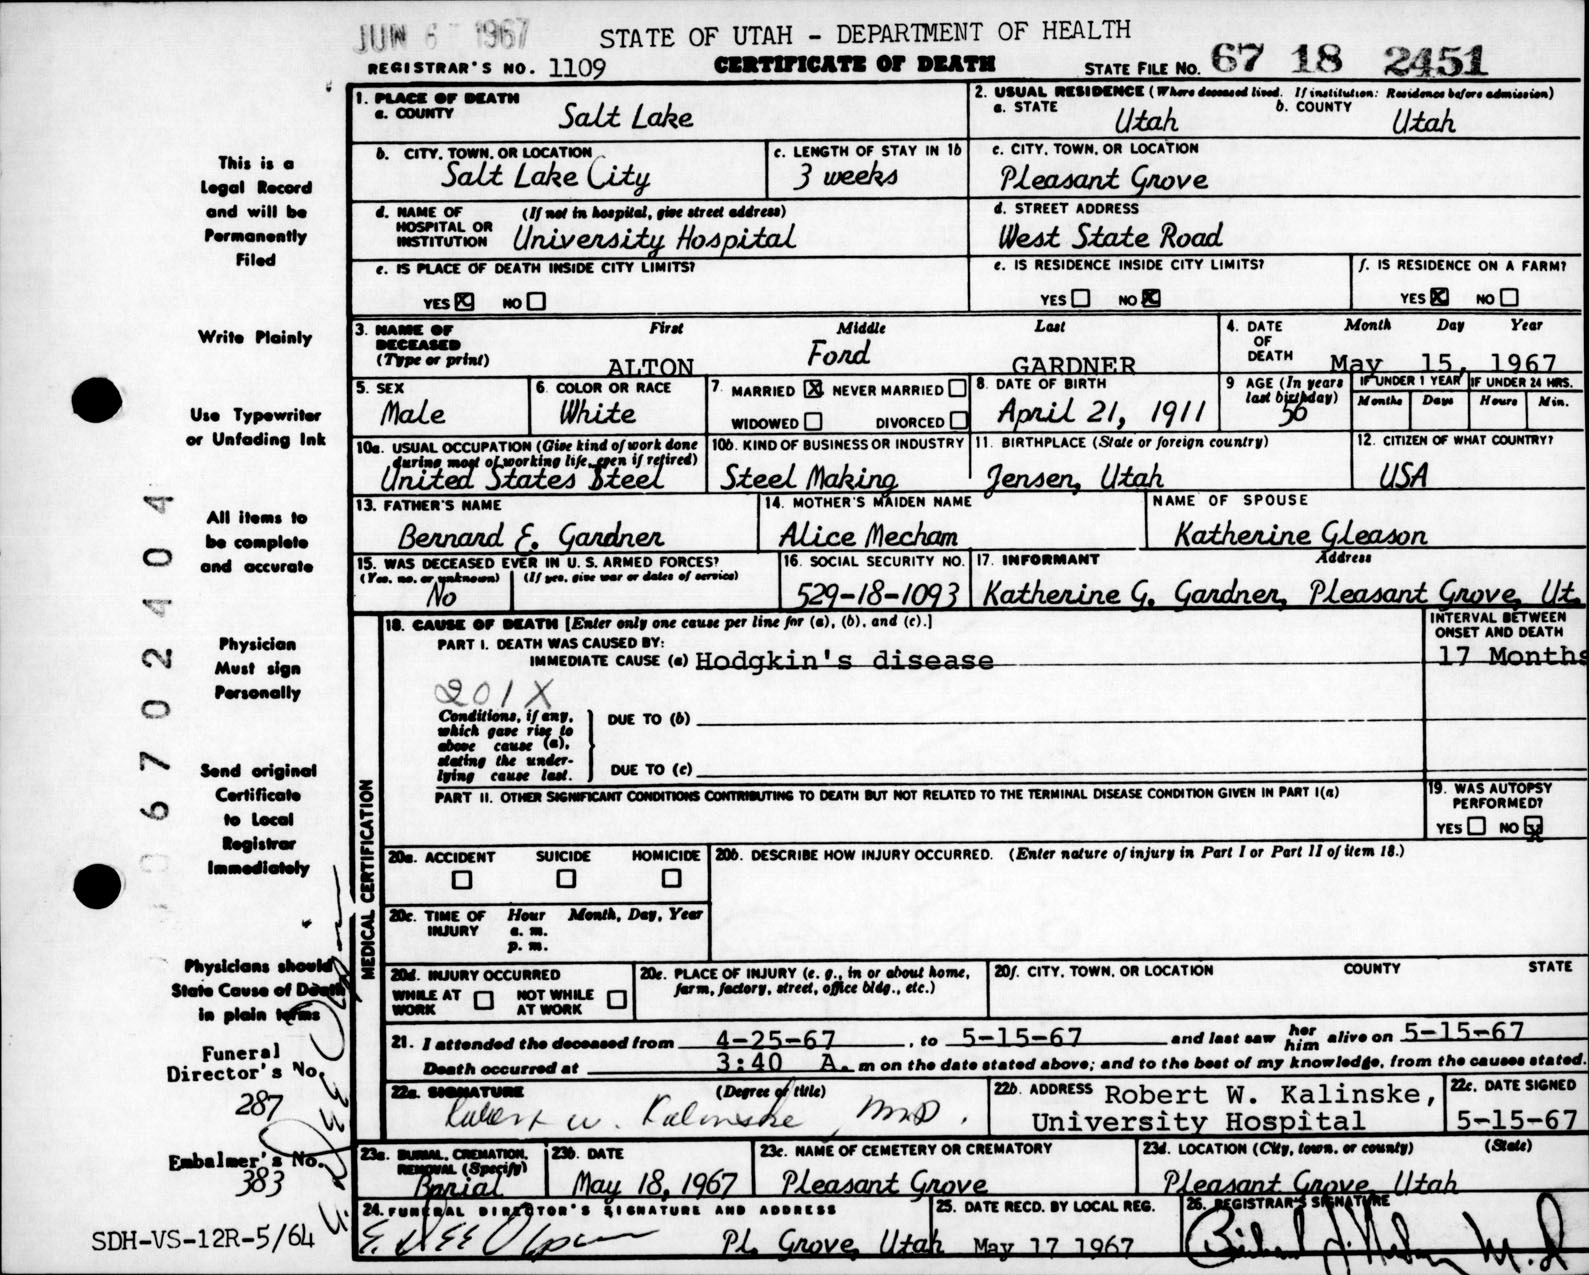 JUN 6 1967
STATE OF UTAH - DEPARTMENT OF HEALTH
REGISTRAR'S NO. 1109
CERTIFICATE OF DEATH
STATE FILE NO. 67 18 2451
This is a
Legal Record
and will be
Permanently
Filed
Write Plainly
Use Typewriter
or Unfading Ink
All items to
be complete
and accurate
Physician
Must sign
Personally
Send original
Certificate
to Local
Registrar
Immediately
Physicians should
State Cause of Death
in plain terms
Funeral
Director's No.
287
Embalmer's No.
383
SDH-VS-12R-5/64
06702404
1. PLACE OF DEATH
a. COUNTY
Salt Lake
2. USUAL RESIDENCE (Where deceased lived. If institution: Residence before admission)
a. STATE
Utah
b. COUNTY
Utah
b. CITY, TOWN, OR LOCATION
Salt Lake City
c. LENGTH OF STAY IN 1b
3 weeks
c. CITY, TOWN, OR LOCATION
Pleasant Grove
d. NAME OF HOSPITAL OR INSTITUTION
(If not in hospital, give street address)
University Hospital
d. STREET ADDRESS
West State Road
e. IS PLACE OF DEATH INSIDE CITY LIMITS?
YES X NO
e. IS RESIDENCE INSIDE CITY LIMITS?
YES NO X
f. IS RESIDENCE ON A FARM?
YES X NO
3. NAME OF DECEASED
(Type or print)
First Middle Last
ALTON Ford GARDNER
4. DATE OF DEATH
Month Day Year
May 15, 1967
5. SEX
Male
6. COLOR OR RACE
White
7. MARRIED X NEVER MARRIED
WIDOWED DIVORCED
8. DATE OF BIRTH
April 21, 1911
9 AGE (In years last birthday)
56
IF UNDER 1 YEAR
Months Days
IF UNDER 24 HRS.
Hours Min.
10a. USUAL OCCUPATION (Give kind of work done during most of working life, even if retired)
United States Steel
10b. KIND OF BUSINESS OR INDUSTRY
Steel Making
11. BIRTHPLACE (State or foreign country)
Jensen, Utah
12. CITIZEN OF WHAT COUNTRY?
USA
13. FATHER'S NAME
Bernard E. Gardner
14. MOTHER'S MAIDEN NAME
Alice Mecham
NAME OF SPOUSE
Katherine Gleason
15. WAS DECEASED EVER IN U. S. ARMED FORCES?
(Yes, no, or unknown) (If yes, give war or dates of service)
No
16. SOCIAL SECURITY NO.
529-18-1093
17. INFORMANT Address
Katherine G. Gardner, Pleasant Grove, Ut.
MEDICAL CERTIFICATION
18. CAUSE OF DEATH [Enter only one cause per line for (a), (b), and (c).]
PART I. DEATH WAS CAUSED BY:
IMMEDIATE CAUSE (a) Hodgkin's disease
INTERVAL BETWEEN ONSET AND DEATH
17 Months
201X
Conditions, if any, which gave rise to above cause (a), stating the underlying cause last.
DUE TO (b)
DUE TO (c)
PART II. OTHER SIGNIFICANT CONDITIONS CONTRIBUTING TO DEATH BUT NOT RELATED TO THE TERMINAL DISEASE CONDITION GIVEN IN PART I(a)
19. WAS AUTOPSY PERFORMED?
YES NO X
20a. ACCIDENT SUICIDE HOMICIDE
20b. DESCRIBE HOW INJURY OCCURRED. (Enter nature of injury in Part I or Part II of item 18.)
20c. TIME OF INJURY
Hour Month, Day, Year
a. m.
p. m.
20d. INJURY OCCURRED
WHILE AT WORK NOT WHILE AT WORK
20e. PLACE OF INJURY (e. g., in or about home, farm, factory, street, office bldg., etc.)
20f. CITY, TOWN, OR LOCATION COUNTY STATE
21. I attended the deceased from 4-25-67, to 5-15-67 and last saw her him alive on 5-15-67
Death occurred at 3:40 A. m on the date stated above; and to the best of my knowledge, from the causes stated.
22a. SIGNATURE (Degree or title)
Robert W. Kalinske, MD.
22b. ADDRESS Robert W. Kalinske,
University Hospital
22c. DATE SIGNED
5-15-67
23a. BURIAL, CREMATION, REMOVAL (Specify)
Burial
23b. DATE
May 18, 1967
23c. NAME OF CEMETERY OR CREMATORY
Pleasant Grove
23d. LOCATION (City, town, or county) (State)
Pleasant Grove, Utah
24. FUNERAL DIRECTOR'S SIGNATURE AND ADDRESS
Pl. Grove, Utah
25. DATE RECD. BY LOCAL REG.
May 17 1967
26. REGISTRAR'S SIGNATURE